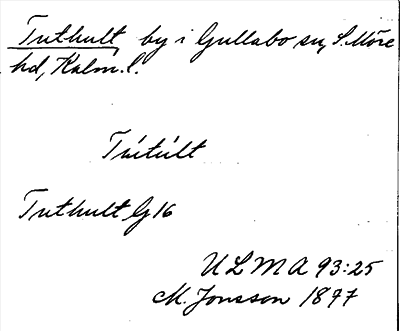 Tuthult, by i Gullabo sn, S. Möre
hd, Kalm.l.
Tútúlt
Tuthult G 16
ULMA 93:25
M. Jonsson 1897